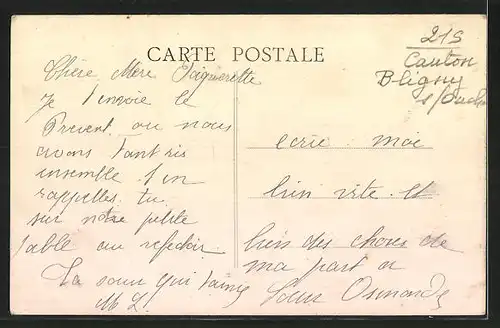 CARTE POSTALE
215
Canton
Bligny
s/Ouche
Chère Mère Paquerette
Je t'envoie le
Present ou nous
avons tant ris
ensemble t'en
rappelles tu
sur notre petite
table au refectoir
Ta sœur qui t'aime
M L
ecrie moi
bien vite et
bien des choses de
ma part a
Sœur Osmonde